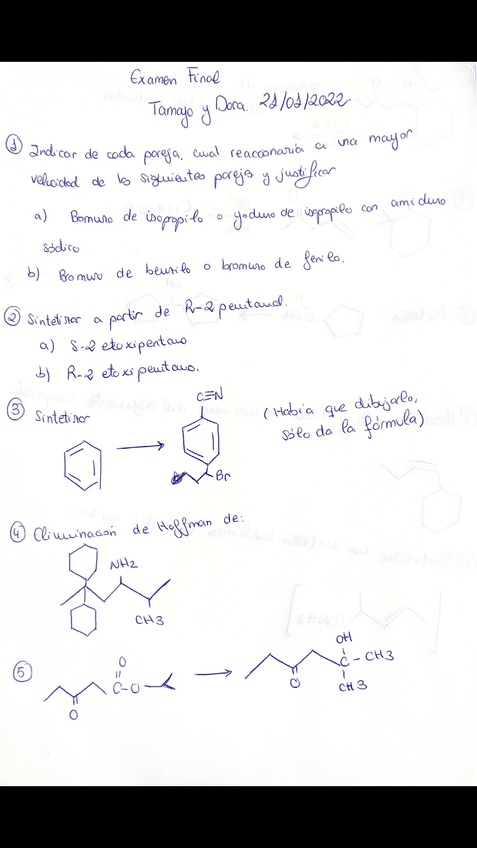 Examen Final
Tamayo y Dora. 21/01/2022.
① Indicar de cada pareja, cual reaccionaría a una mayor
velocidad de las siguientes parejas y justificar
a) Bomuro de isopropilo o yoduro de isopropilo con amiduro
sódico
b) Bromuro de bencilo o bromuro de fenilo.
② Sintetizar a partir de R-2 pentanol.
a) S-2 etoxipentano
b) R-2 etoxipentano.
③ Sintetizar
C≡N
Br
(Había que dibujarlo,
sólo da la fórmula)
④ Eliminación de Hoffman de:
NH2
CH3
⑤
O
C-O
O
OH
C-CH3
O
CH3